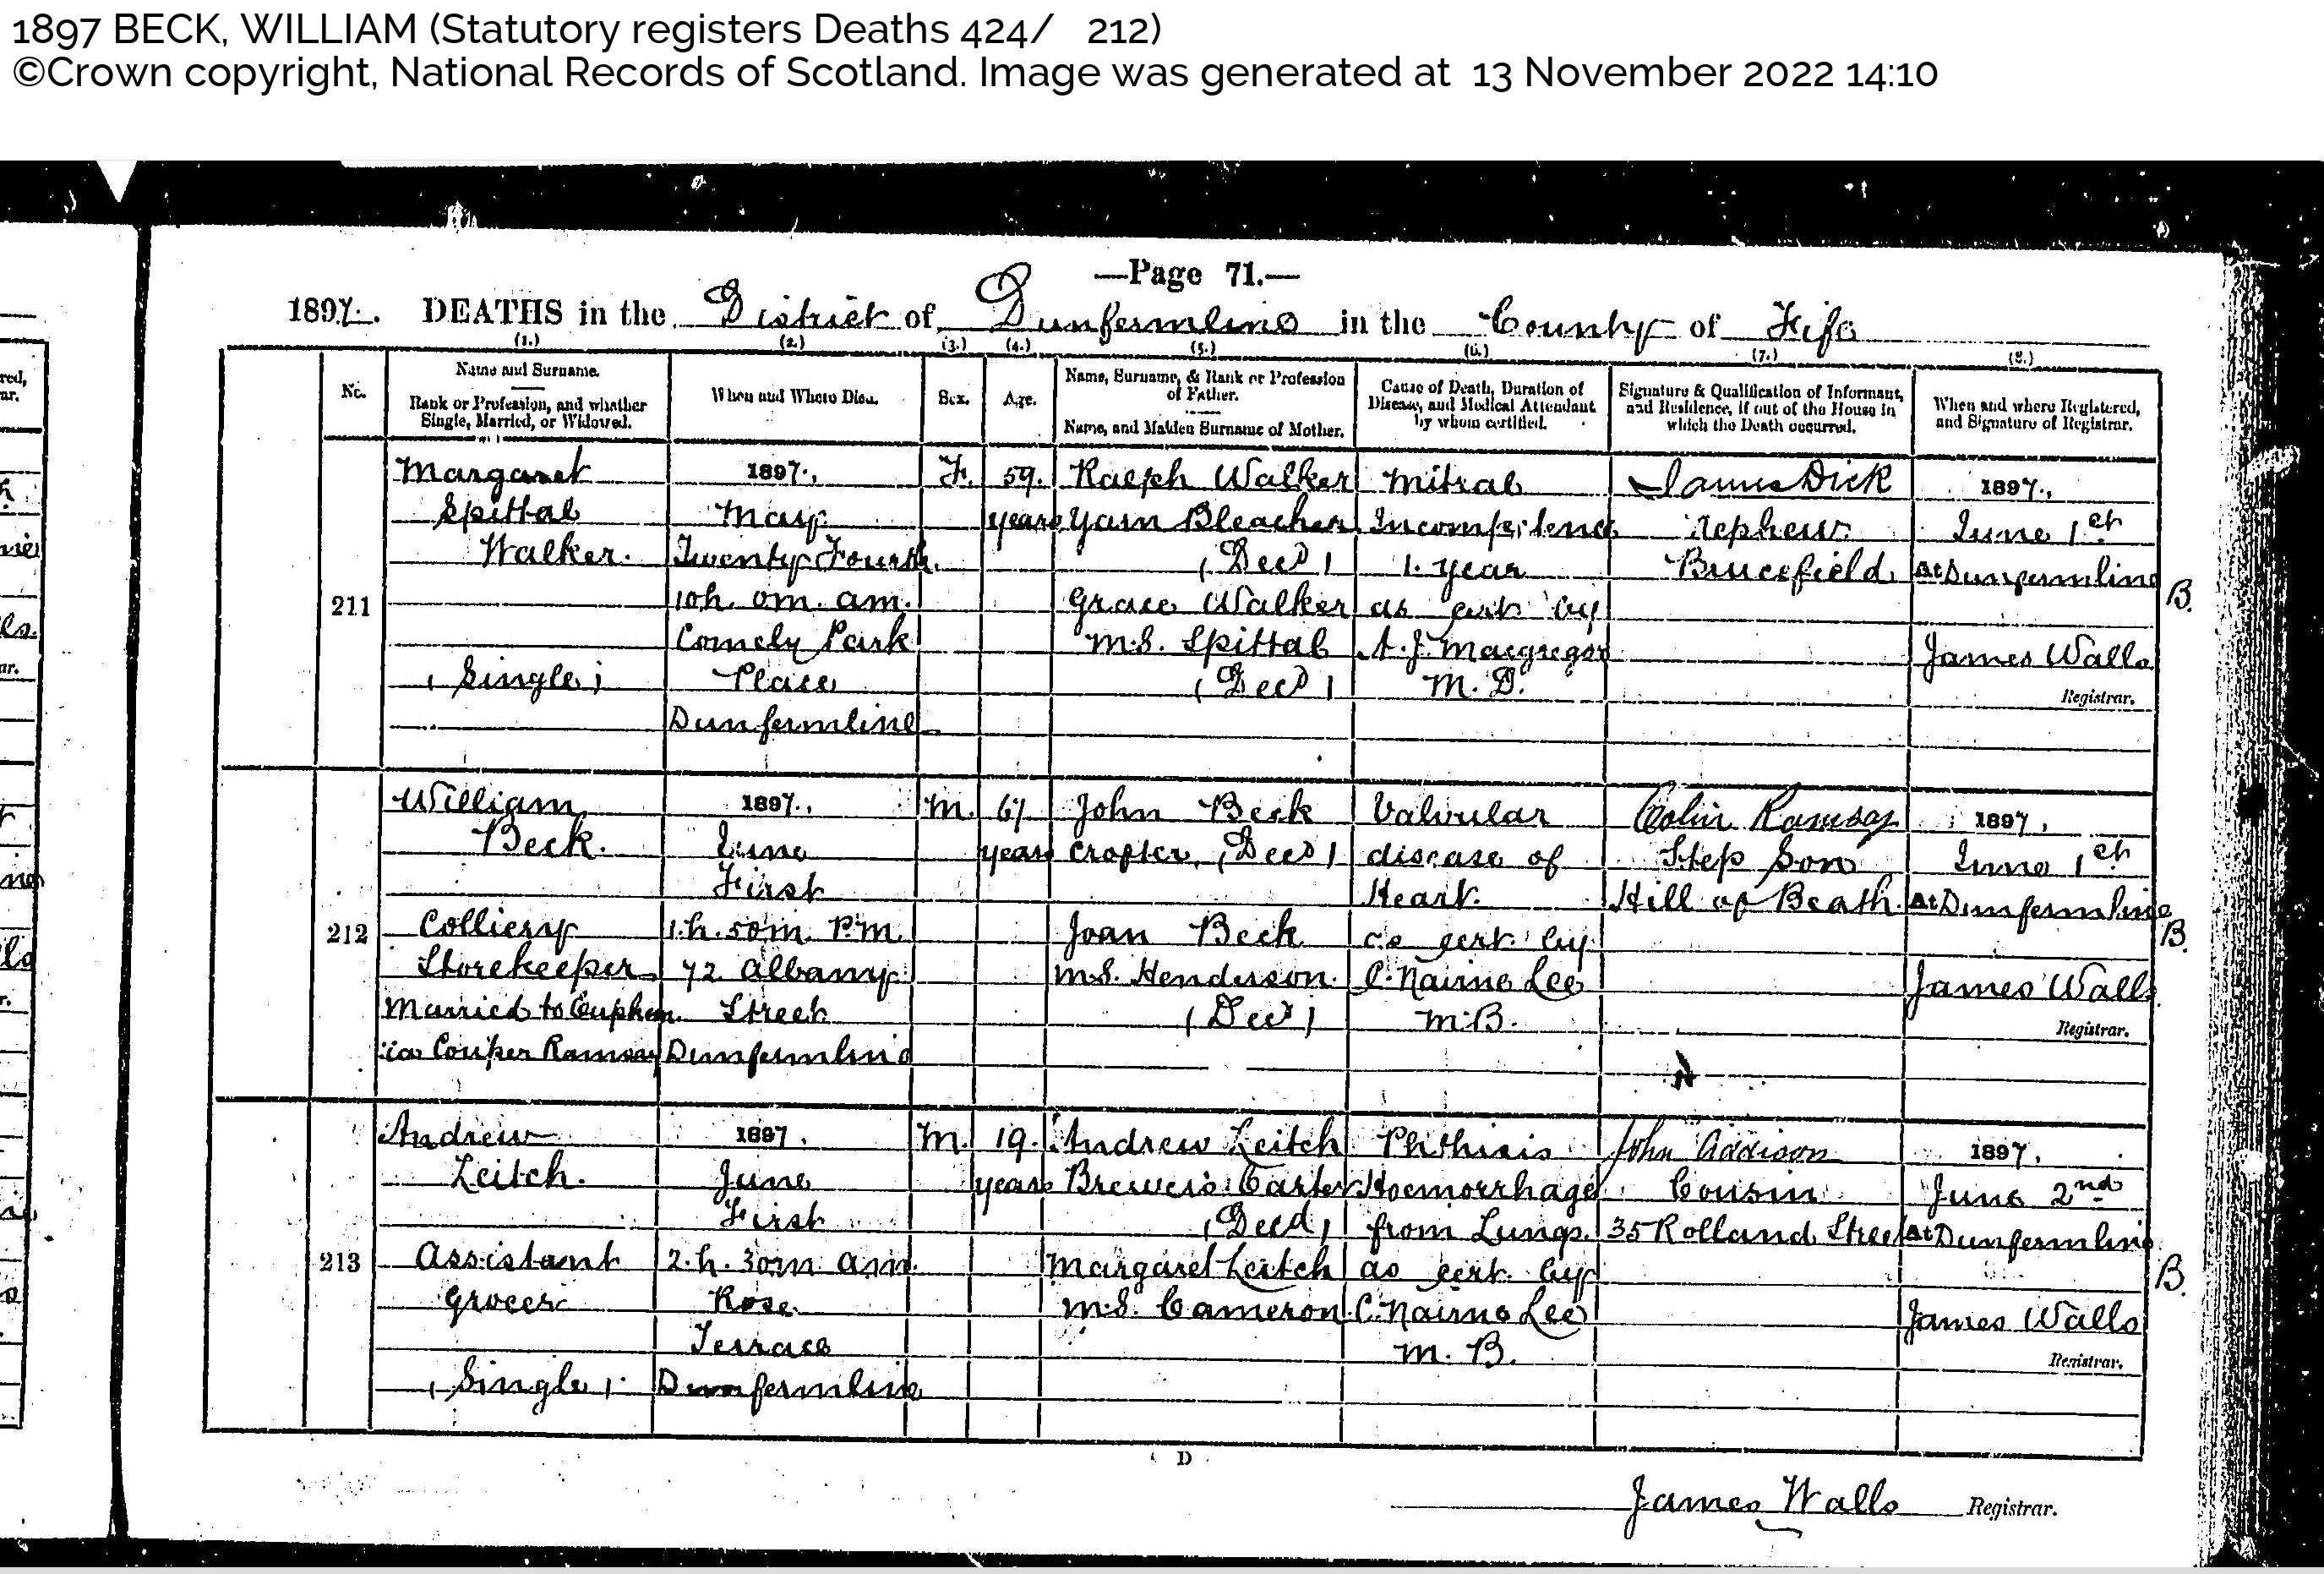 1897 BECK, WILLIAM (Statutory registers Deaths 424/ 212)
©Crown copyright, National Records of Scotland. Image was generated at 13 November 2022 14:10
—Page 71.—
1897. DEATHS in the District of Dunfermline in the County of Fife
(1.) (2.) (3.) (4.) (5.) (6.) (7.) (8.)
No.
Name and Surname.
Rank or Profession, and whether
Single, Married, or Widowed.
When and Where Died.
Sex.
Age.
Name, Surname, & Rank or Profession
of Father.
Name, and Maiden Surname of Mother.
Cause of Death, Duration of
Disease, and Medical Attendant
by whom certified.
Signature & Qualification of Informant,
and Residence, if out of the House in
which the Death occurred.
When and where Registered,
and Signature of Registrar.
211
Margaret
Spittal
Walker.
(Single)
1897.,
May
Twenty Fourth.
10h. 0m. am.
Comely Park
Place
Dunfermline
F.
59.
years
Ralph Walker
Yarn Bleacher
(Decd)
Grace Walker
M.S. Spittal
(Decd)
Mitral
Incompetence
1. year
as cert by
A. J. Macgregor
M. D.
James Dick
Nephew
Brucefield
1897.,
June 1st
At Dunfermline
James Walls
Registrar.
B.
212
William
Beck.
Colliery
Storekeeper
Married to Euphem
:ia Couper Ramsay
1897.,
June
First
1.h. 50m. P.m.
72 Albany
Street
Dunfermline
M.
67
years
John Beck
Crofter, (Decd)
Joan Beck
M.S. Henderson.
(Decd)
Valvular
disease of
Heart.
as cert by
C. Nairne Lee
M.B.
Colin Ramsay
Step Son
Hill of Beath.
1897.
June 1st
At Dunfermline
James Walls
Registrar.
B.
213
Andrew
Leitch.
Assistant
Grocer
(Single)
1897.
June
First
2.h. 30m am.
Rose
Terrace
Dunfermline
M.
19.
years
Andrew Leitch
Brewer's Carter
(Decd)
Margaret Leitch
M.S. Cameron
Phthisis
Hoemorrhage
from Lungs.
as cert. by
C. Nairne Lee
M. B.
John Addison
Cousin
35 Rolland Street
1897.
June 2nd
At Dunfermline
James Walls
Registrar.
B.
D
James Walls Registrar.